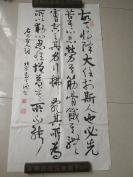 天将降大任于斯人也必先
苦其心志劳其筋骨饿其体
肤空乏其身行拂乱其所为
所以动心忍性增益其所不能